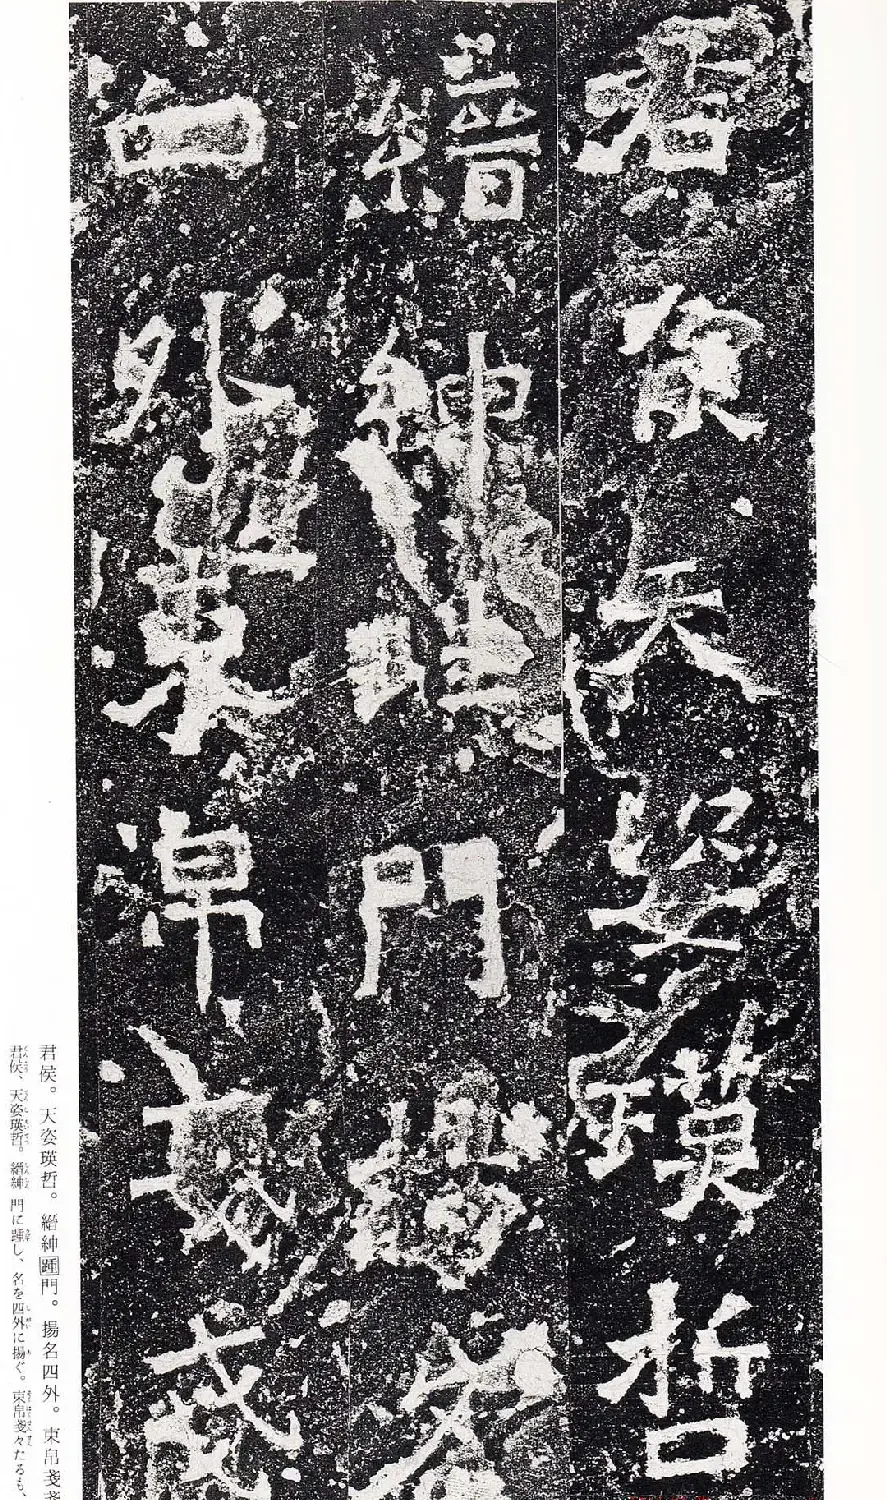 君侯天姿瑛哲
縉紳踵門揚名
四外束帛戔戔
君侯。天姿瑛哲。縉紳踵門。揚名四外。束帛戔戔
君侯、天姿瑛哲。縉紳 門に踵し、名を四外に揚ぐ。束帛戔々たるも、